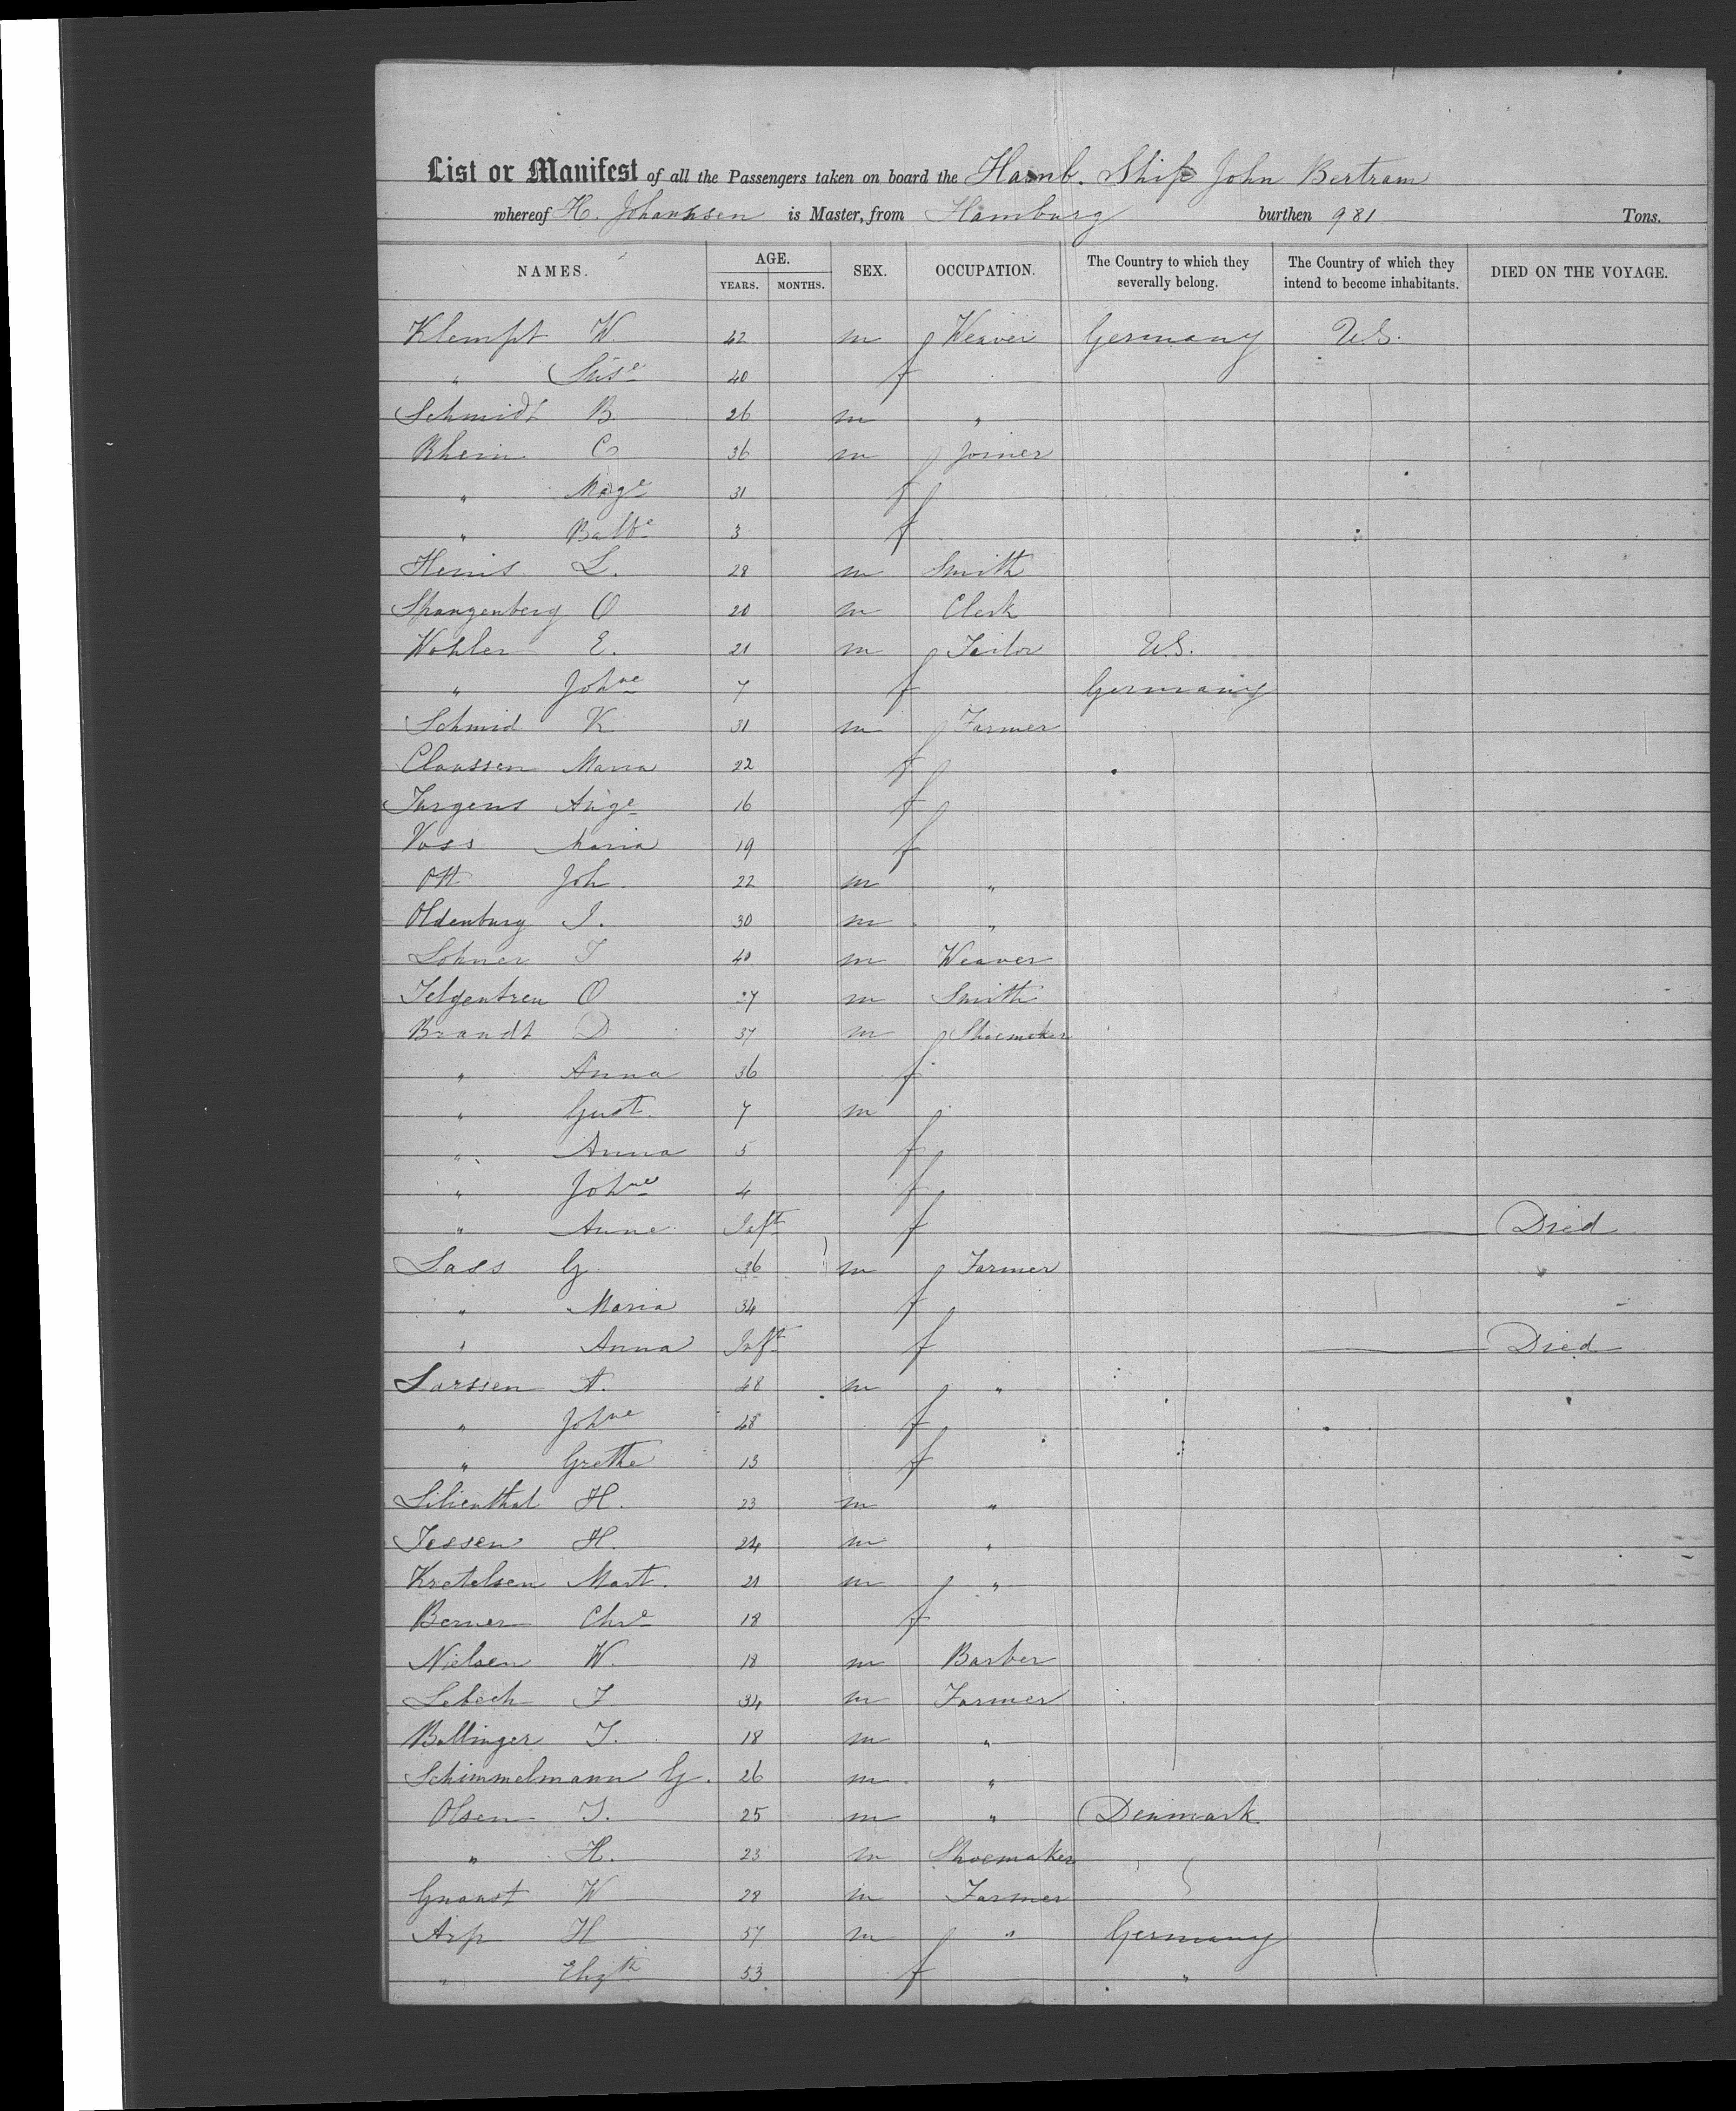 List or Manifest of all the Passengers taken on board the Hamb. Ship John Bertram
whereof H. Johannsen is Master, from Hamburg burthen 981 Tons.
NAMES. AGE. YEARS. MONTHS. SEX. OCCUPATION. The Country to which they severally belong. The Country of which they intend to become inhabitants. DIED ON THE VOYAGE.
Klempt W. 42 m Weaver Germany U.S.
" Suse 40 f
Schmidt B. 26 m "
Rhein C 36 m Joiner
" Mage 31 f
" Balbe 3 f
Heins L. 28 m Smith
Spangenberg O 20 m Clerk
Wohler E. 21 m Tailor U.S.
" Johne 7 f Germany
Schmid K 31 m Farmer
Claussen Maria 22 f
Jurgens Auge 16 f
Voss Maria 19 f
Ott Joh. 22 m "
Oldenburg J. 30 m "
Lohner J 40 m Weaver
Telgentreu O m Smith
Brandt D 37 m Shoemaker
" Anna 36 f
" Gust. 7 m
" Anna 5 f
" Johne 4 f
" Anne Inft f Died
Lass G 36 m Farmer
" Maria 34 f
" Anna Inft f Died
Larssen A. 48 m "
" Johne 48 f
" Grethe 13 f
Lilienthal H. 23 m "
Jessen H. 24 m "
Kretelsen Mart. 21 m "
Berner Chre 18 f
Nielsen W. 18 m Barber
Lebech J 34 m Farmer
Bollinger J. 18 m "
Schimmelmann G. 26 m "
Olsen J. 25 m " Denmark
" H. 23 m Shoemaker
Gnaust W 28 m Farmer
Arp H 57 m " Germany
" Elizth 53 f "